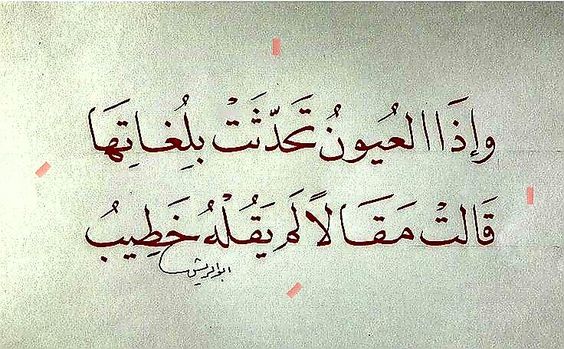 وإذَا العُيونُ تَحَدّثَتْ بلُِغـاتِهَا
قَالتْ مَقَـالاً لَم يَقُـلْهُ خَطِيبُ